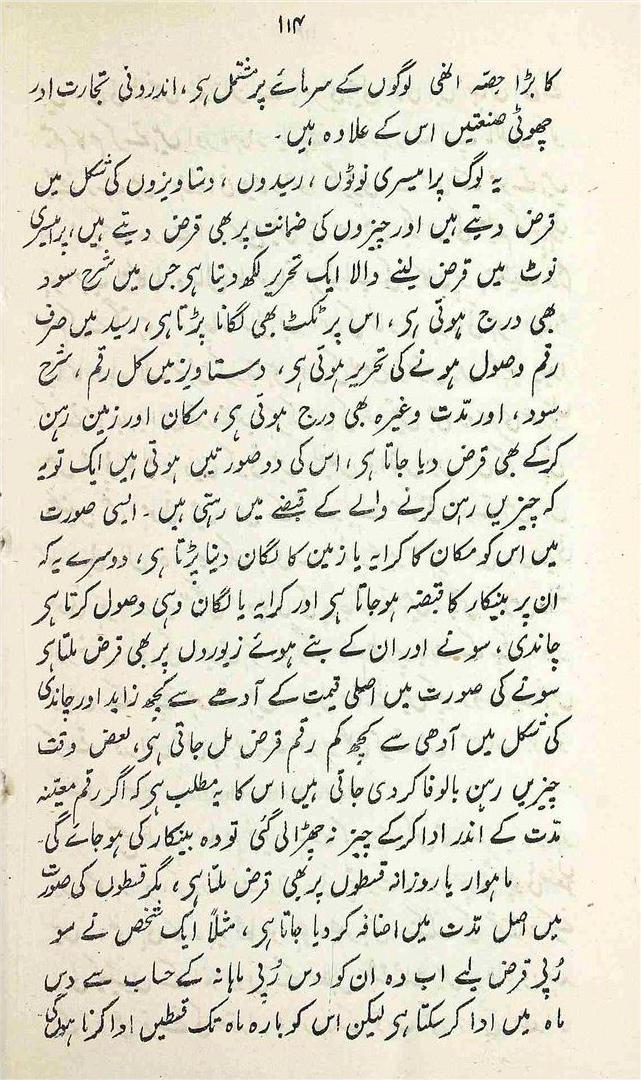 ۱۱۴
کا بڑا حصّہ انھی لوگوں کے سرمائے پر مشتمل ہی، اندرونی تجارت اور
چھوٹی صنعتیں اس کے علاوہ ہیں۔
یہ لوگ پرامیسری نوٹوں، رسیدوں، دستاویزوں کی شکل میں
قرض دیتے ہیں اور چیزوں کی ضمانت پر بھی قرض دیتے ہیں، پرامیسری
نوٹ میں قرض لینے والا ایک تحریر لکھ دیتا ہی جس میں شرح سود
بھی درج ہوتی ہی، اس پر ٹکٹ بھی لگانا پڑتا ہی، رسید میں صرف
رقم وصول ہونے کی تحریر ہوتی ہی، دستاویز میں کل رقم، شرح
سود، اور مدّت وغیرہ بھی درج ہوتی ہی، مکان اور زمین رہن
کرکے بھی قرض دیا جاتا ہی، اس کی دو صورتیں ہوتی ہیں ایک تو یہ
کہ چیزیں رہن کرنے والے کے قبضے میں رہتی ہیں۔ ایسی صورت
میں اس کو مکان کا کرایہ یا زمین کا لگان دینا پڑتا ہی، دوسرے یہ کہ
ان پر بینکار کا قبضہ ہوجاتا ہی اور کرایہ یا لگان وہی وصول کرتا ہی
چاندی، سونے اور ان کے بنے ہوئے زیوروں پر بھی قرض ملتا ہی
سونے کی صورت میں اصلی قیمت کے آدھے سے کچھ زاید اور چاندی
کی شکل میں آدھی سے کچھ کم رقم قرض مل جاتی ہی، بعض وقت
چیزیں رہن بالوفا کردی جاتی ہیں اس کا یہ مطلب ہی کہ اگر رقم معیّنہ
مدّت کے اندر ادا کرکے چیز نہ چھڑالی گئی تو وہ بینکار کی ہوجائے گی۔
ماہوار یا روزانہ قسطوں پر بھی قرض ملتا ہی، مگر قسطوں کی صورت
میں اصل مدّت میں اضافہ کردیا جاتا ہی، مثلاً ایک شخص نے سو
رُپی قرض لیے اب وہ ان کو دس رُپی ماہانہ کے حساب سے دس
ماہ میں ادا کرسکتا ہی لیکن اس کو بارہ ماہ تک قسطیں ادا کرنا ہوں گی